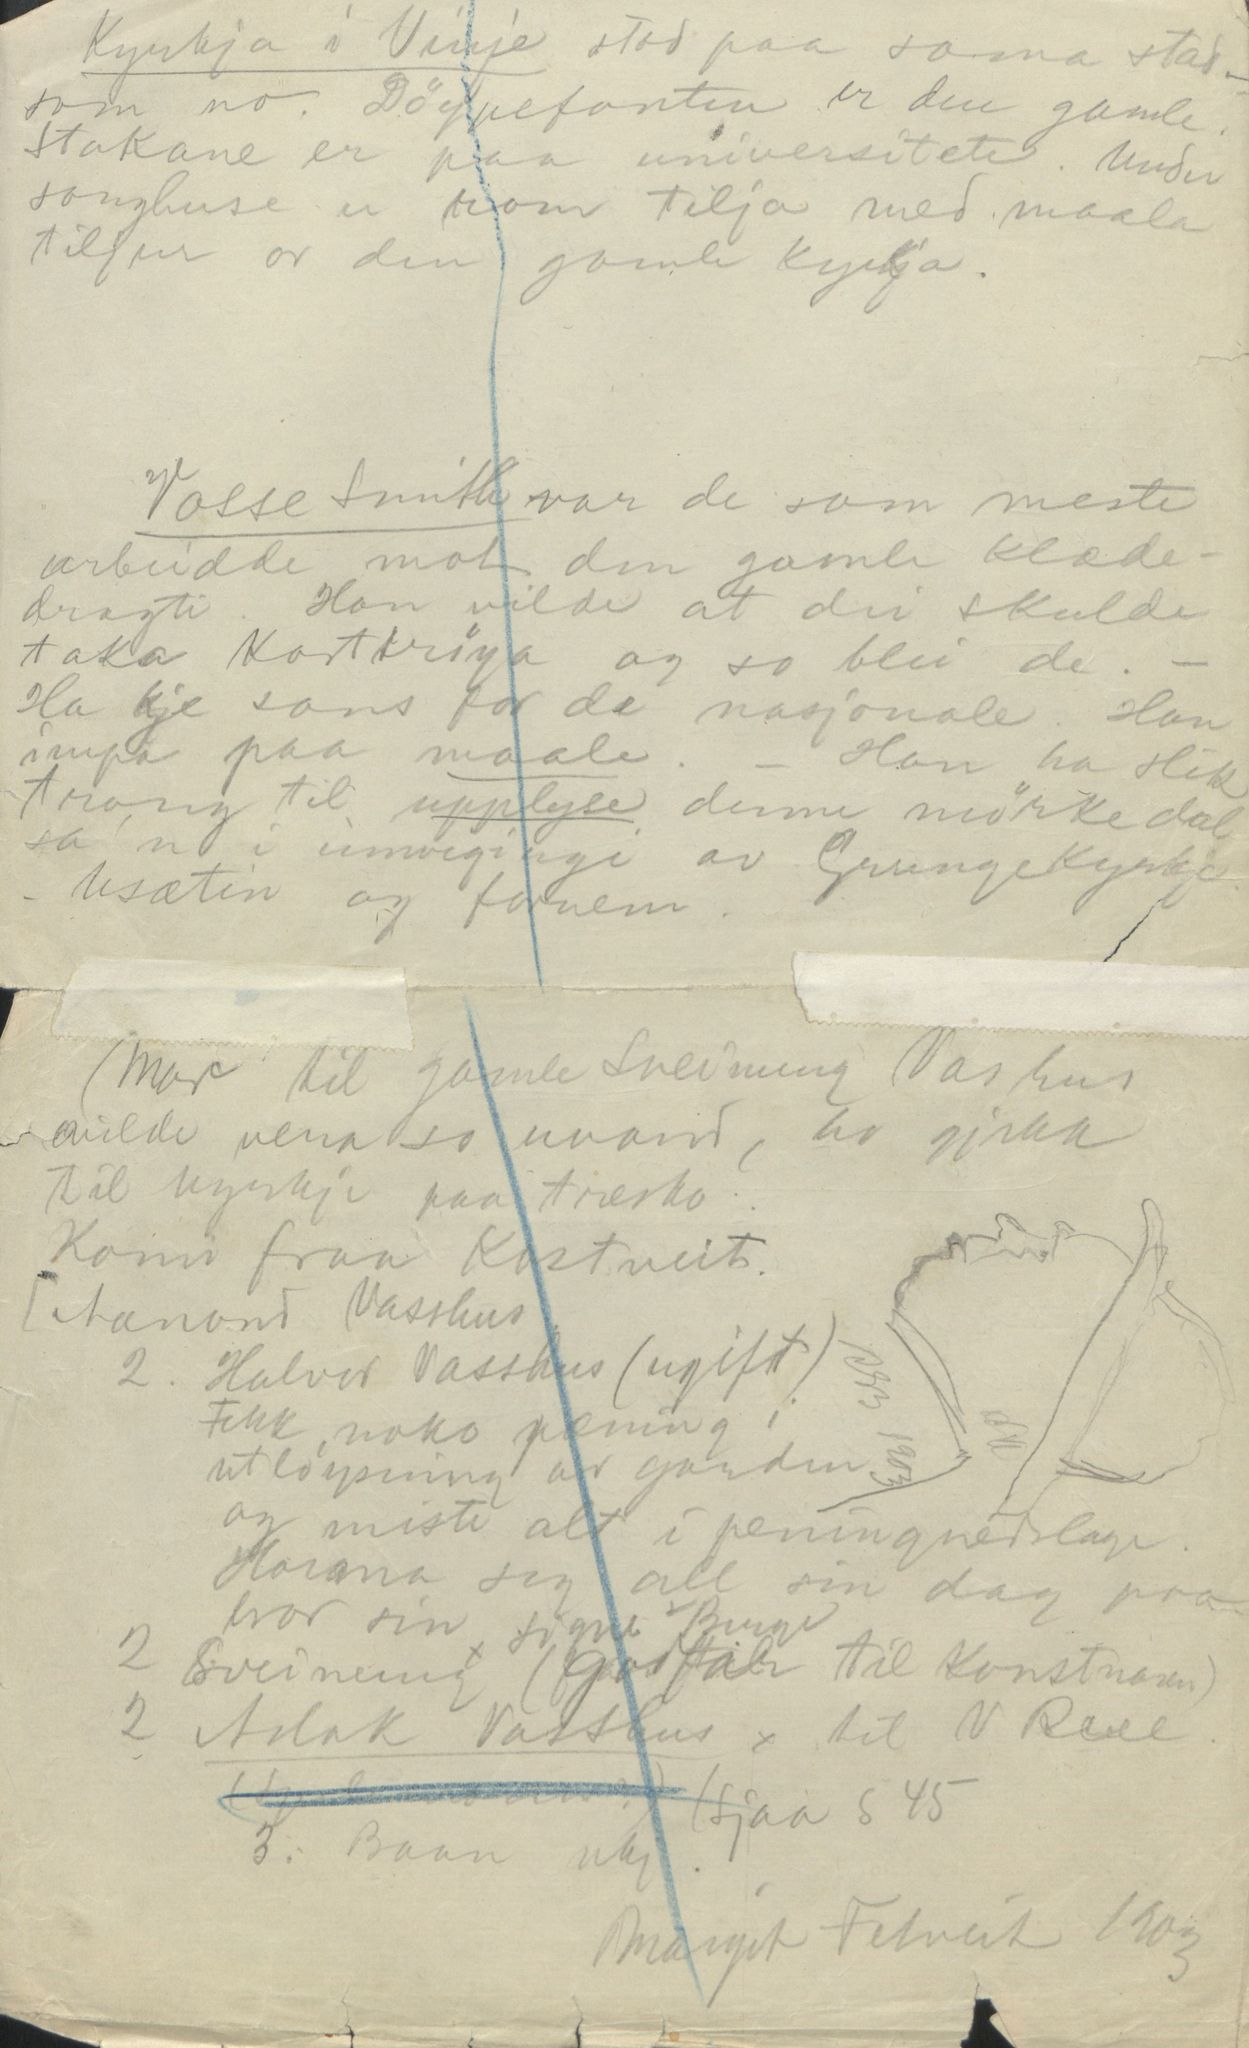 Kyrkja i Vinje stod paa soma stad
som no. Döypefonten er den gamle.
Stakane er paa universitete. Under
songhuse er tilja med maala
tiljur or den gomle kyrkja.
Vosse Smith var de som meste
arbeidde mot den gamle klæde-
dragti. Han vilde at dei skulde
taka kort og so blei de. -
Ha kje sans for de nasjonale. Han
paa maale. - Han ha slik
trong til upplyse denne mörke dal
sa n i av Grungekyrkje
- Usætin og fornem.
(Mor til gamle Sveinung Vashus
vilde vera so uvand, ho gjekk
til kyrkje paa træsko.
Kom fraa Kostveit.
Aanond Vasshus
2. Halvor Vasshus (ugift)
Fekk noko pening i
utlöysning av garden
og miste alt i peningnedslage.
seg all sin dag paa
bror sin
Signe Burge
2 Sveinung (godfar til Konstnaren)
2 Aslak Vasshus x til V
(Sjaa s 45
3. Baan
1903
Margit Fetveit 1903